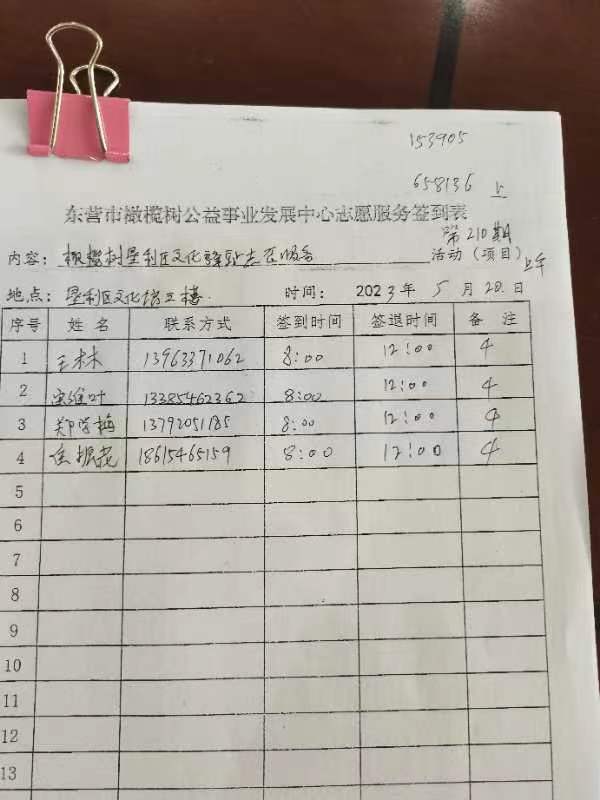 153905
658136 上
东营市橄榄树公益事业发展中心志愿服务签到表
第210期
内容：橄榄树垦利区文化驿站志愿服务 活动（项目）上午
地点：垦利区文化馆三楼. 时间： 2023年 5 月 20 日
序号 姓 名 联系方式 签到时间 签退时间 备 注
1 王林 13963371062 8:00 12:00 4
2 13385462362 8:00 12:00 4
3 郑学梅 13792051185 8:00 12:00 4
4 任振花 18615465159 8:00 12:00 4
5
6
7
8
9
10
11
12
13